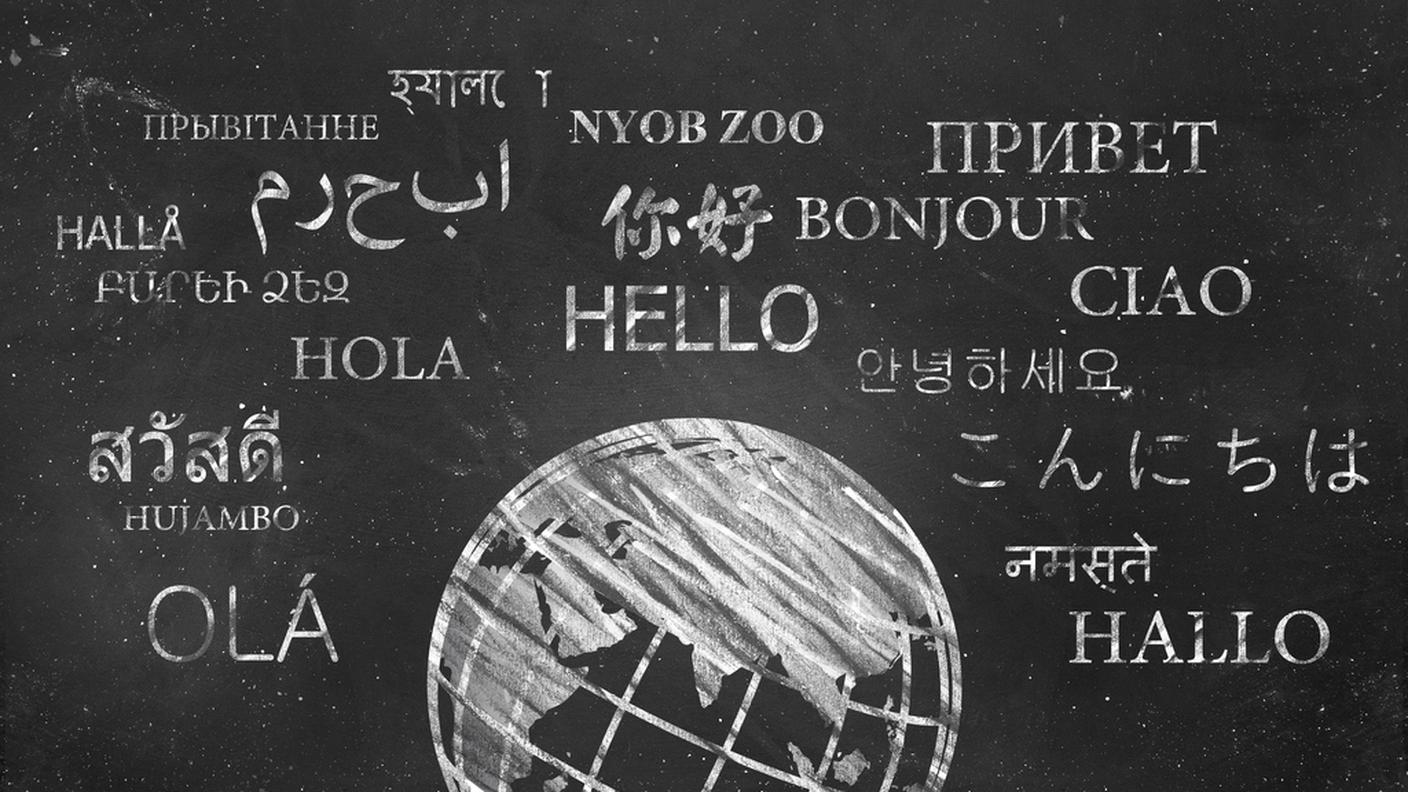 হ্যালো
ПРЫВІТАННЕ
NYOB ZOO
ПРИВЕТ
م ر ح ب ا
HALLÅ
你好
BONJOUR
ԲԱՐԵՒ ՁԵԶ
CIAO
HELLO
HOLA
안녕하세요
สวัสดี
こんにちは
HUJAMBO
नमस्ते
OLÁ
HALLO